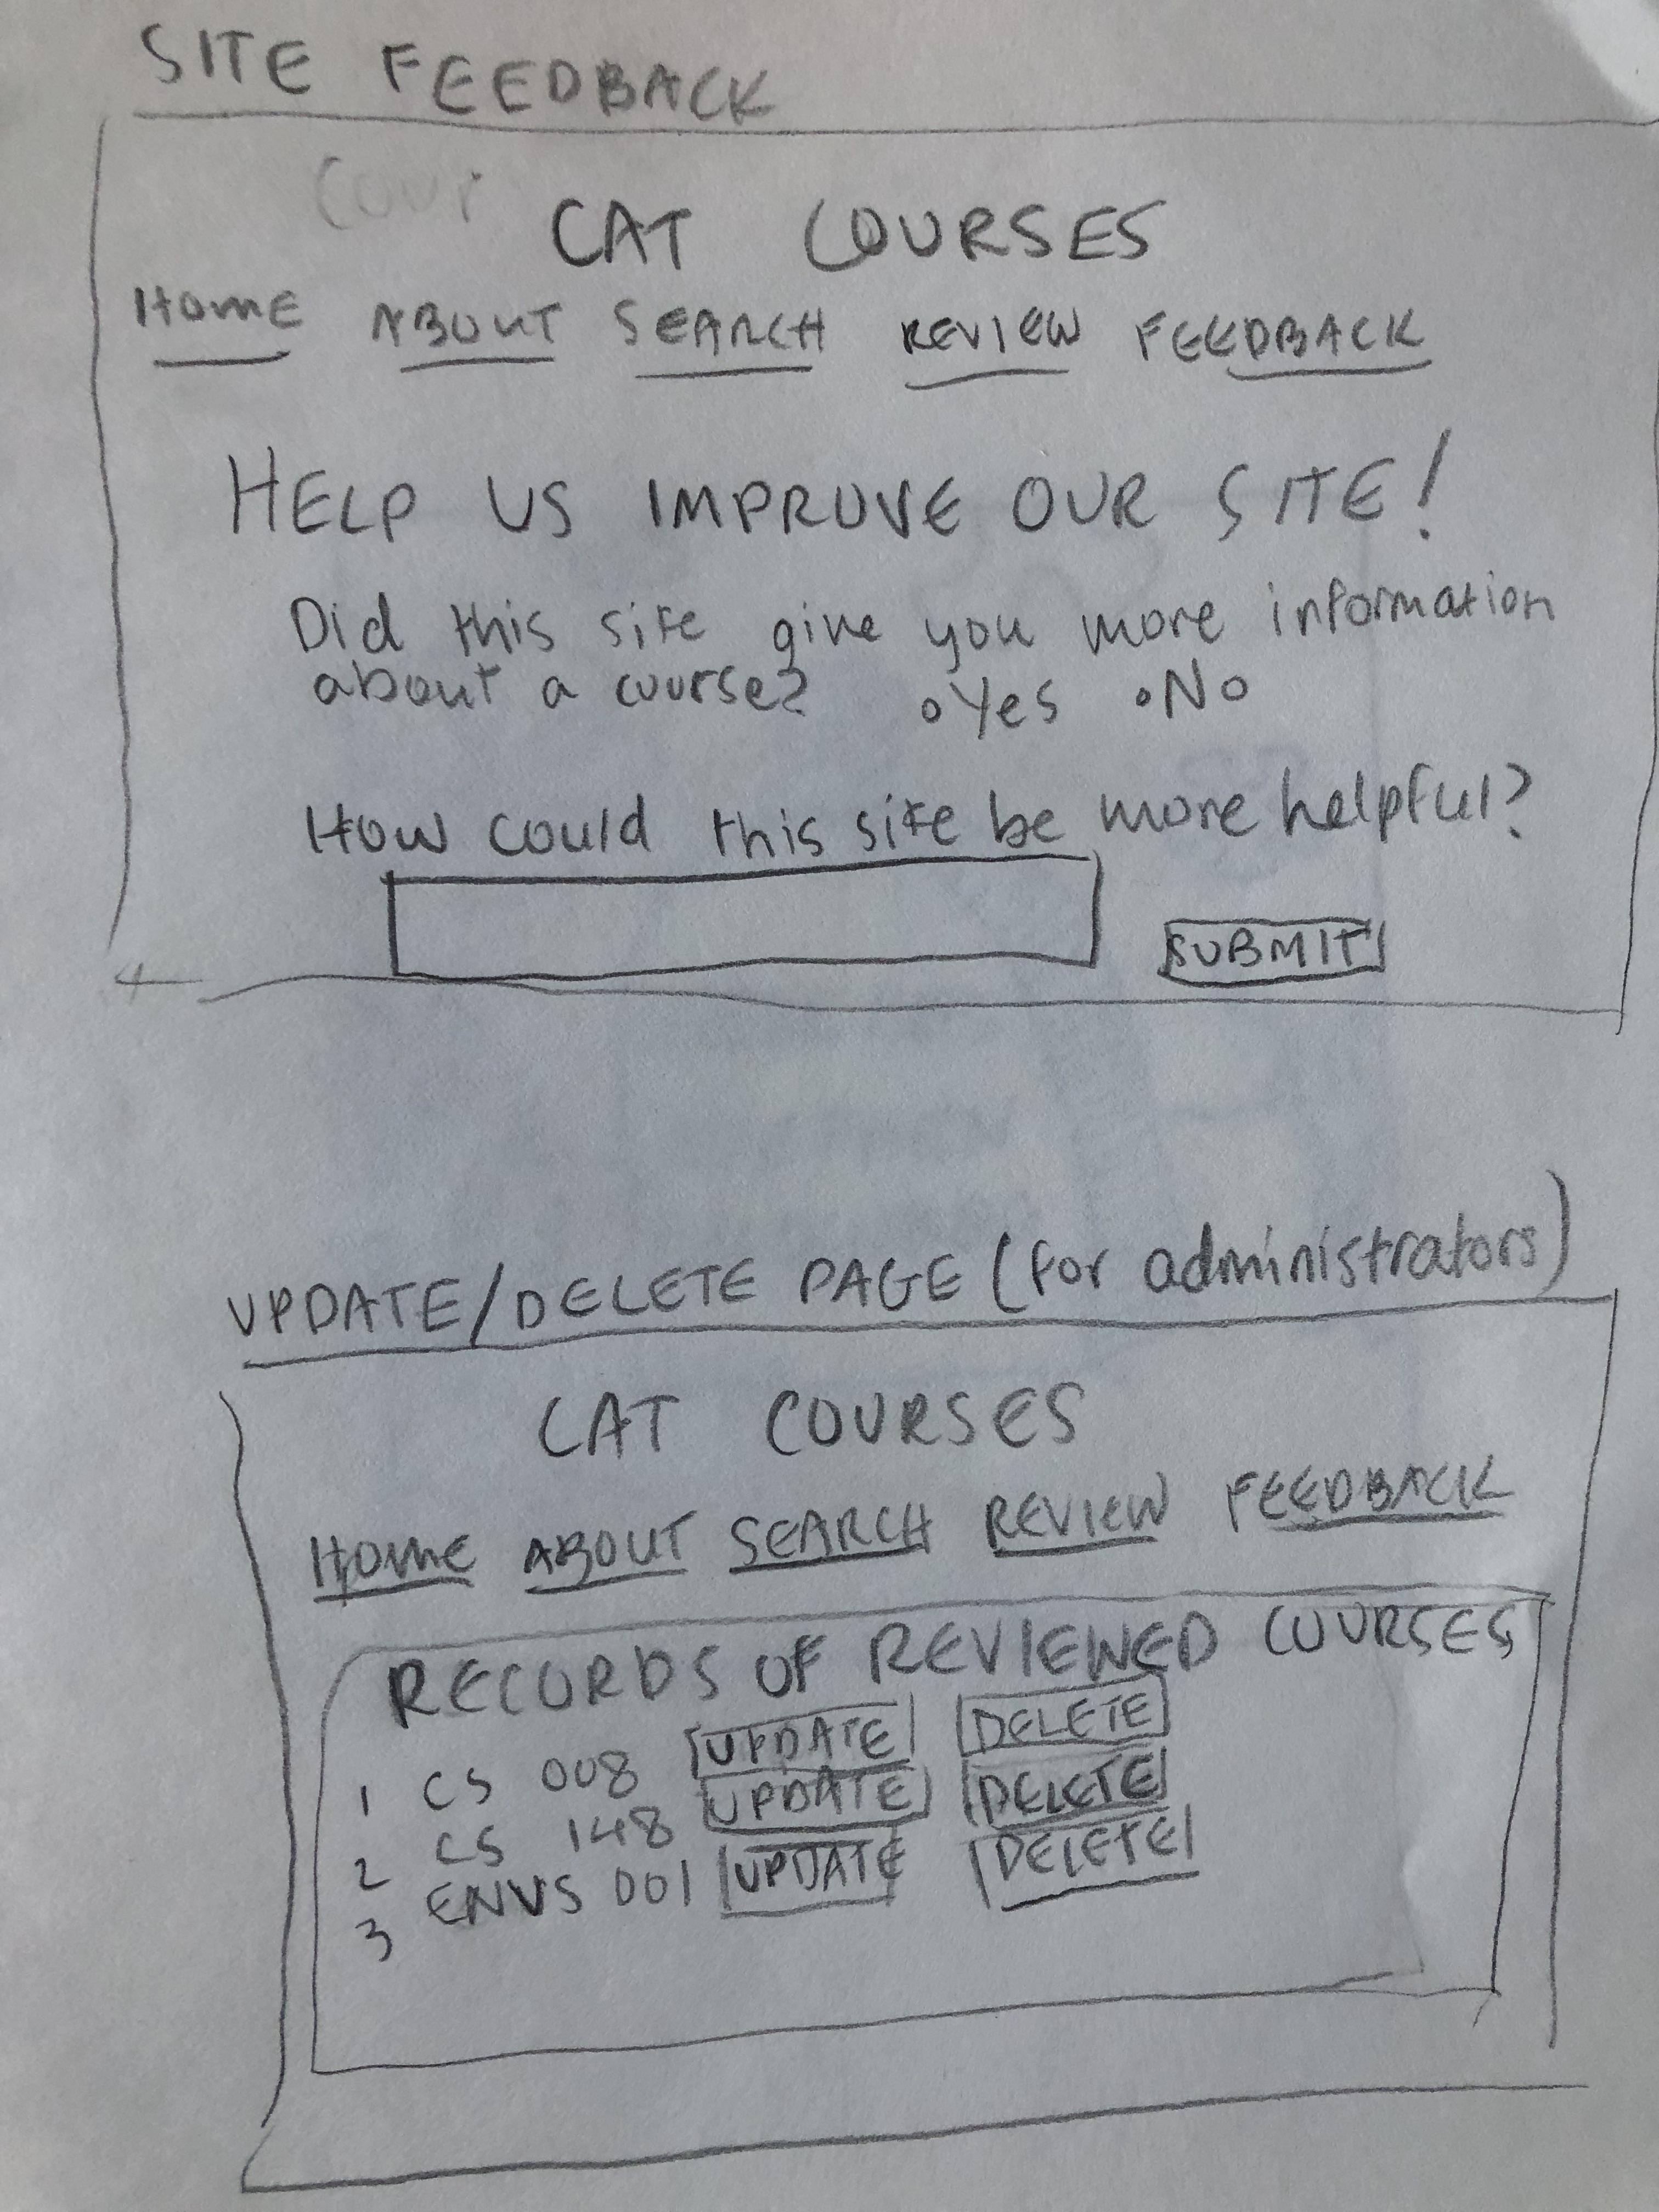 SITE FEEDBACK
Cour
CAT COURSES
HOME ABOUT SEARCH REVIEW FEEDBACK
HELP US IMPROVE OUR SITE!
Did this site give you more information
about a course? Yes No
How could this site be more helpful?
SUBMIT
UPDATE/DELETE PAGE (for administrators)
CAT COURSES
HOME ABOUT SEARCH REVIEW FEEDBACK
RECORDS OF REVIEWED COURSES
1 CS 008 UPDATE DELETE
2 CS 148 UPDATE DELETE
3 ENVS 001 UPDATE DELETE